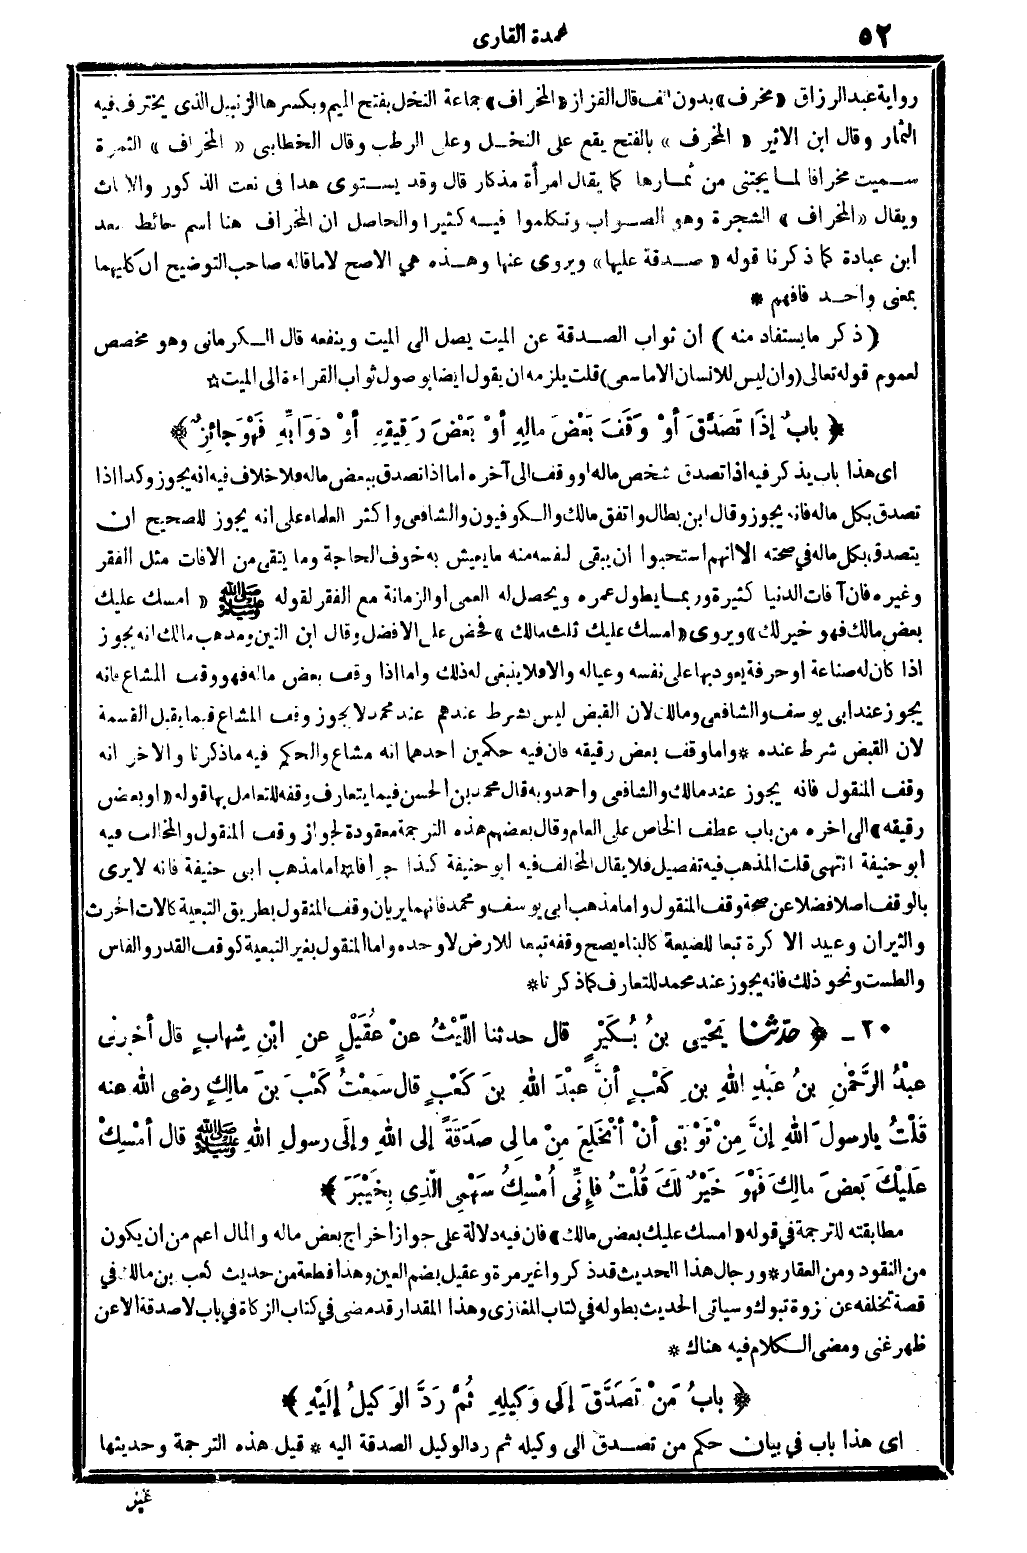 ٥٢
عمدة القارى
رواية عبد الرزاق «مخرف» بدون الف قال القزاز «المخراف» جماعة النخل بفتح الميم وبكسرها الزنبيل الذى يخترف فيه
الثمار وقال ابن الاثير « المخرف » بالفتح يقع على النخل وعلى الرطب وقال الخطابى « المخراف » الثمرة
سميت مخرافا لما يجتنى من ثمارها كما يقال امرأة مذكار قال وقد يستوى هذا فى نعت الذكور والاناث
ويقال «المخراف» الشجرة وهو الصواب وتكلموا فيه كثيرا والحاصل ان المخراف هنا اسم حائط سعد
ابن عبادة كما ذكرنا قوله « صدقة عليها» ويروى عنها وهذه هي الاصح لاما قاله صاحب التوضيح ان كليهما
بمعنى واحد فافهم *
( ذكر ما يستفاد منه ) ان ثواب الصدقة عن الميت يصل الى الميت وينفعه قال الكرمانى وهو مخصص
لعموم قوله تعالى (وان ليس للانسان الا ما سعى) قلت يلزمه ان يقول ايضا بوصول ثواب القراءة الى الميت☆
﴿ بابٌ إذَا تَصَدَّقَ أوْ وَقَفَ بَعْضَ مالِهِ أوْ بَعْضَ رَقِيقِهِ أوْ دَوَابِّهِ فَهْوَ جائِزٌ * ﴾
اى هذا باب يذكر فيه اذا تصدق شخص ماله او وقف الى آخره اما اذا تصدق ببعض ماله فلا خلاف فيه انه يجوز وكذا اذا
تصدق بكل ماله فانه يجوز وقال ابن بطال واتفق مالك والكوفيون والشافعى واكثر العلماء على انه يجوز للصحيح ان
يتصدق بكل ماله في صحته الا انهم استحبوا ان يبقى لنفسه منه ما يعيش به خوف الحاجة وما يتقى من الافات مثل الفقر
وغيره فان آفات الدنيا كثيرة وربما يطول عمره ويحصل له العمى او الزمانة مع الفقر لقوله ﷺ « امسك عليك
بعض مالك فهو خير لك» ويروى «امسك عليك ثلث مالك» فحض على الافضل وقال ابن التين ومذهب مالك انه يجوز
اذا كان له صناعة او حرفة يعود بها على نفسه وعياله والا فلا ينبغى له ذلك واما اذا وقف بعض ماله فهو وقف المشاع فانه
يجوز عند ابى يوسف والشافعى ومالك لان القبض ليس بشرط عندهم عند محمد لا يجوز وقف المشاع فيما يقبل القسمة
لان القبض شرط عنده *واما وقف بعض رقيقه فان فيه حكمين احدهما انه مشاع والحكم فيه ما ذكرنا والاخر انه
وقف المنقول فانه يجوز عند مالك والشافعى واحمد وبه قال محمد بن الحسن فيما يتعارف وقفه للتعامل بها قوله « او بعض
رقيقه » الى اخره من باب عطف الخاص على العام وقال بعضهم هذه الترجمة معقودة لجواز وقف المنقول والمخالف فيه
ابو حنيفة انتهى قلت المذهب فيه تفصيل فلا يقال المخالف فيه ابو حنيفة كذا جزافا اما مذهب ابى حنيفة فانه لا يرى
بالوقف اصلا فضلا عن صحة وقف المنقول واما مذهب ابى يوسف ومحمد فانهما يريان وقف المنقول بطريق التبعية كالات الحرث
والثيران وعبيد الاكرة تبعا للضيعة كالبناء يصح وقفه تبعا للارض لا وحده واما المنقول بغير التبعية كوقف القدر والفاس
والطست ونحو ذلك فانه يجوز عند محمد للتعارف كما ذكرنا*
٢٠ ـ ﴿ حدّثنا يَحْيى بنُ بُكَيْرٍ قال حدثنا اللَّيْثُ عنْ عُقَيْلٍ عنِ ابْنِ شِهابٍ قال أخبرنى
عبْدُ الرَّحْمٰنِ بنُ عَبْدِ اللهِ بنِ كَعْبٍ أنَّ عبْدَ اللهِ بنَ كَعْبٍ قال سَمِعْتُ كَعْبَ بنَ مالِكٍ رضى الله عنه
قُلْتُ يا رسولَ اللهِ إنَّ مِنْ تَوْبَتى أنْ أنْخَلِعَ مِنْ مالِى صَدَقَةً إلى اللهِ وإلَى رسولِ اللهِ ﷺ قال أمْسِكْ
عَلَيْكَ بَعْضَ مالِكَ فَهْوَ خَيْرٌ لَكَ قُلْتُ فإِنِّى أُمْسِكُ سَهْمِى الَّذِى بِخَيْبَرَ ﴾
مطابقته للترجمة في قوله « امسك عليك بعض مالك» فان فيه دلالة على جواز اخراج بعض ماله والمال اعم من ان يكون
من النقود ومن العقار* ورجال هذا الحديث قد ذكروا غير مرة وعقيل بضم العين وهذا قطعة من حديث كعب بن مالك في
قصة تخلفه عن غزوة تبوك وسياتى الحديث بطوله في كتاب المغازى وهذا المقدار قد مضى في كتاب الزكاة في باب لا صدقة الا عن
ظهر غنى ومضى الكلام فيه هناك *
﴿ بابُ مَنْ تَصَدَّقَ إلَى وَكِيلِهِ ثُمَّ رَدَّ الوَكِيلُ إلَيْهِ ﴾
اى هذا باب في بيان حكم من تصدق الى وكيله ثم رد الوكيل الصدقة اليه * قيل هذه الترجمة وحديثها
غير